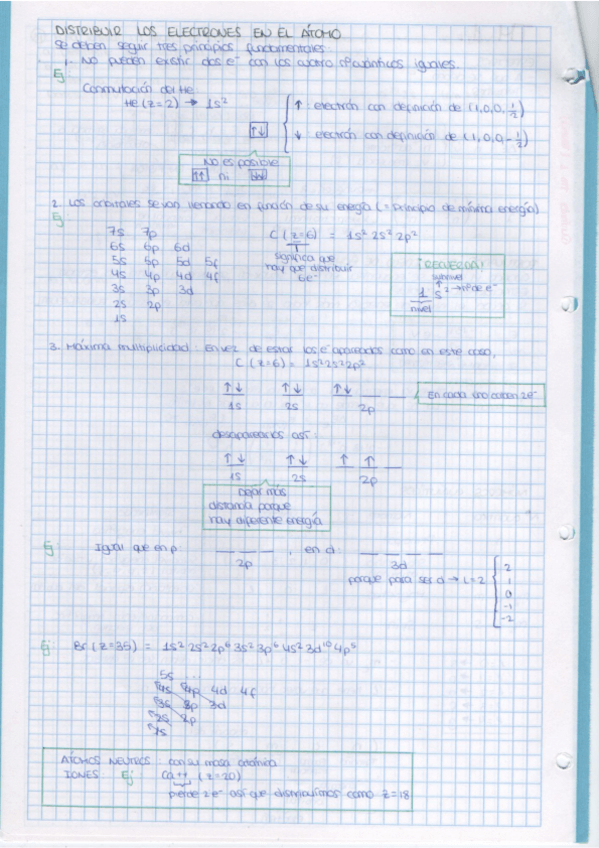 DISTRIBUIR LOS ELECTRONES EN EL ÁTOMO
Se deben seguir tres principios fundamentales:
1. No pueden existir dos e⁻ con los cuatro nº cuánticos iguales.
Ej:
Conmutación del He
He (z=2) → 1s²
↑↓
↑: electrón con definición de (1,0,0, 1/2)
↓ electrón con definición de (1,0,0 - 1/2)
No es posible
↑↑ ni ↓↓
2. Los orbitales se van llenando en función de su energía (= Principio de mínima energía)
Ej
7s 7p
6s 6p 6d
5s 5p 5d 5f
4s 4p 4d 4f
3s 3p 3d
2s 2p
1s
C (z=6) = 1s² 2s² 2p²
significa que
hay que distribuir
6e⁻
¡RECUERDA!
subnivel
1 s² → nº de e⁻
nivel
3. Máxima multiplicidad: en vez de estar los e⁻ apareados como en este caso,
C (z=6) = 1s² 2s² 2p²
↑↓ ↑↓ ↑↓ __ __
1s 2s 2p
En cada uno caben 2e⁻
desaparearlos así:
↑↓ ↑↓ ↑ ↑ __
1s 2s 2p
Dejar más
distancia porque
hay diferente energía
Ej: Igual que en p: __ __ __ , en d: __ __ __ __
2p 3d
porque para ser d → L=2
2
1
0
-1
-2
Ej: Br (z=35) = 1s² 2s² 2p⁶ 3s² 3p⁶ 4s² 3d¹⁰ 4p⁵
5s ...
4s 4p 4d 4f
3s 3p 3d
2s 2p
1s
ÁTOMOS NEUTROS: con su masa atómica
IONES: Ej: Ca++ (z=20)
pierde 2e⁻ así que distribuimos como z=18